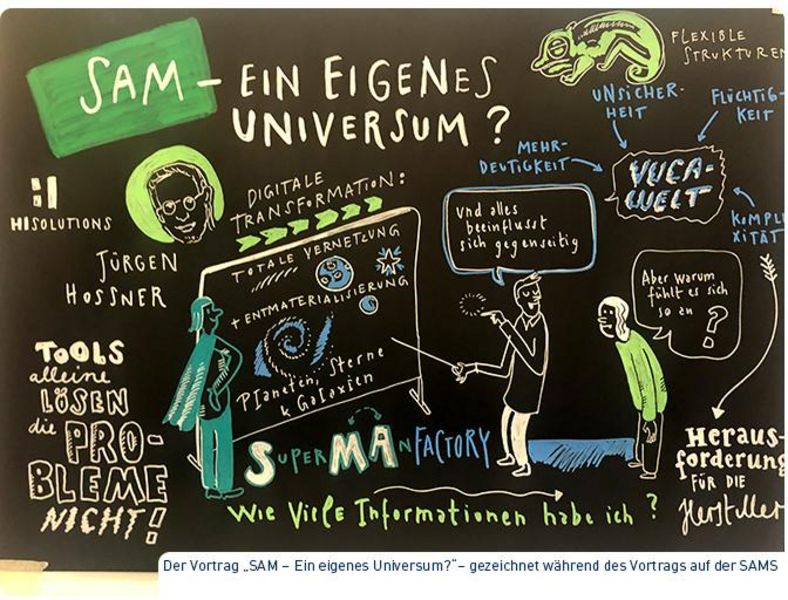 SAM – EIN EIGENES
UNIVERSUM?
FLEXIBLE
STRUKTUREN
UNSICHER-
HEIT
FLÜCHTIG-
KEIT
MEHR-
DEUTIGKEIT
VUCA-
WELT
KOMPLE
XITÄT
HISOLUTIONS
JÜRGEN
HOSSNER
DIGITALE
TRANSFORMATION:
TOTALE VERNETZUNG
+ ENTMATERIALISIERUNG
Planeten, Sterne
& Galaxien
Und alles
beeinflusst
sich gegenseitig
Aber warum
fühlt es sich
so an
?
TOOLS
alleine
LÖSEN
die PRO-
BLEME
NICHT!
SUPERMAnFACTORY
Heraus-
forderung
FÜR DIE
Hersteller
Wie viele Informationen habe ich?
Der Vortrag „SAM – Ein eigenes Universum?“– gezeichnet während des Vortrags auf der SAMS